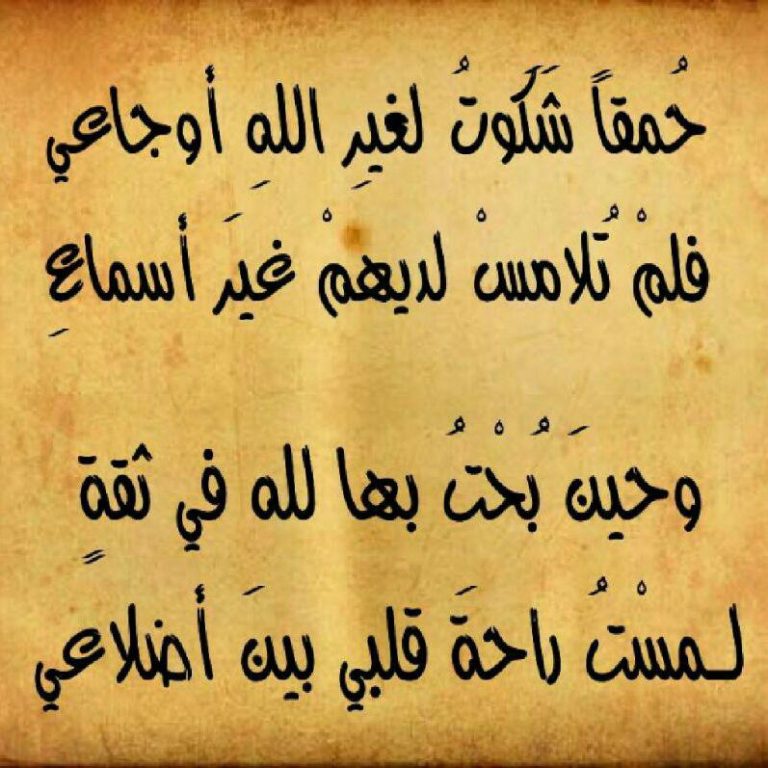 حُمقاً شَكَوتُ لغيرِ اللهِ أوجاعي
فلمْ تُلامسْ لديهمْ غيَر أسماعِ
وحينَ بُحْتُ بها لله في ثقةٍ
لـمسْتُ راحةَ قلبي بينَ أضلاعي